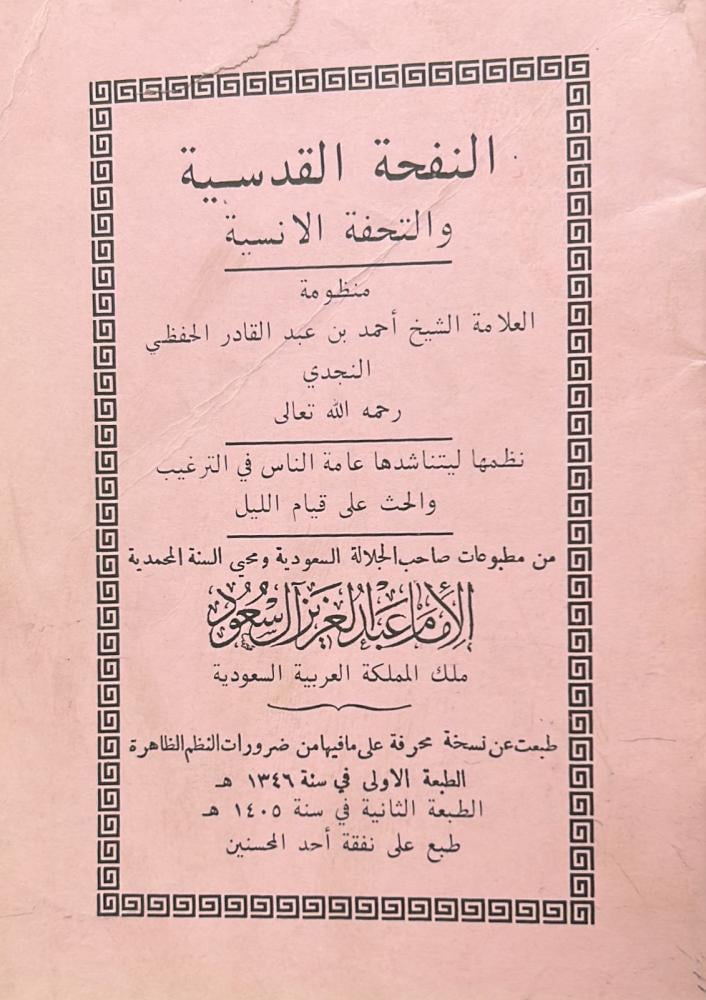 النفحة القدسية
والتحفة الانسية
منظومة
العلامة الشيخ أحمد بن عبد القادر الحفظي
النجدي
رحمه الله تعالى
نظمها ليتناشدها عامة الناس في الترغيب
والحث على قيام الليل
من مطبوعات صاحب الجلالة السعودية ومحيي السنة المحمدية
الإمام عبد العزيز آل سعود
ملك المملكة العربية السعودية
طبعت عن نسخة محرفة على مافيها من ضرورات النظم الظاهرة
الطبعة الاولى في سنة ١٣٤٦ هـ
الطبعة الثانية في سنة ١٤٠٥ هـ
طبع على نفقة أحد المحسنين